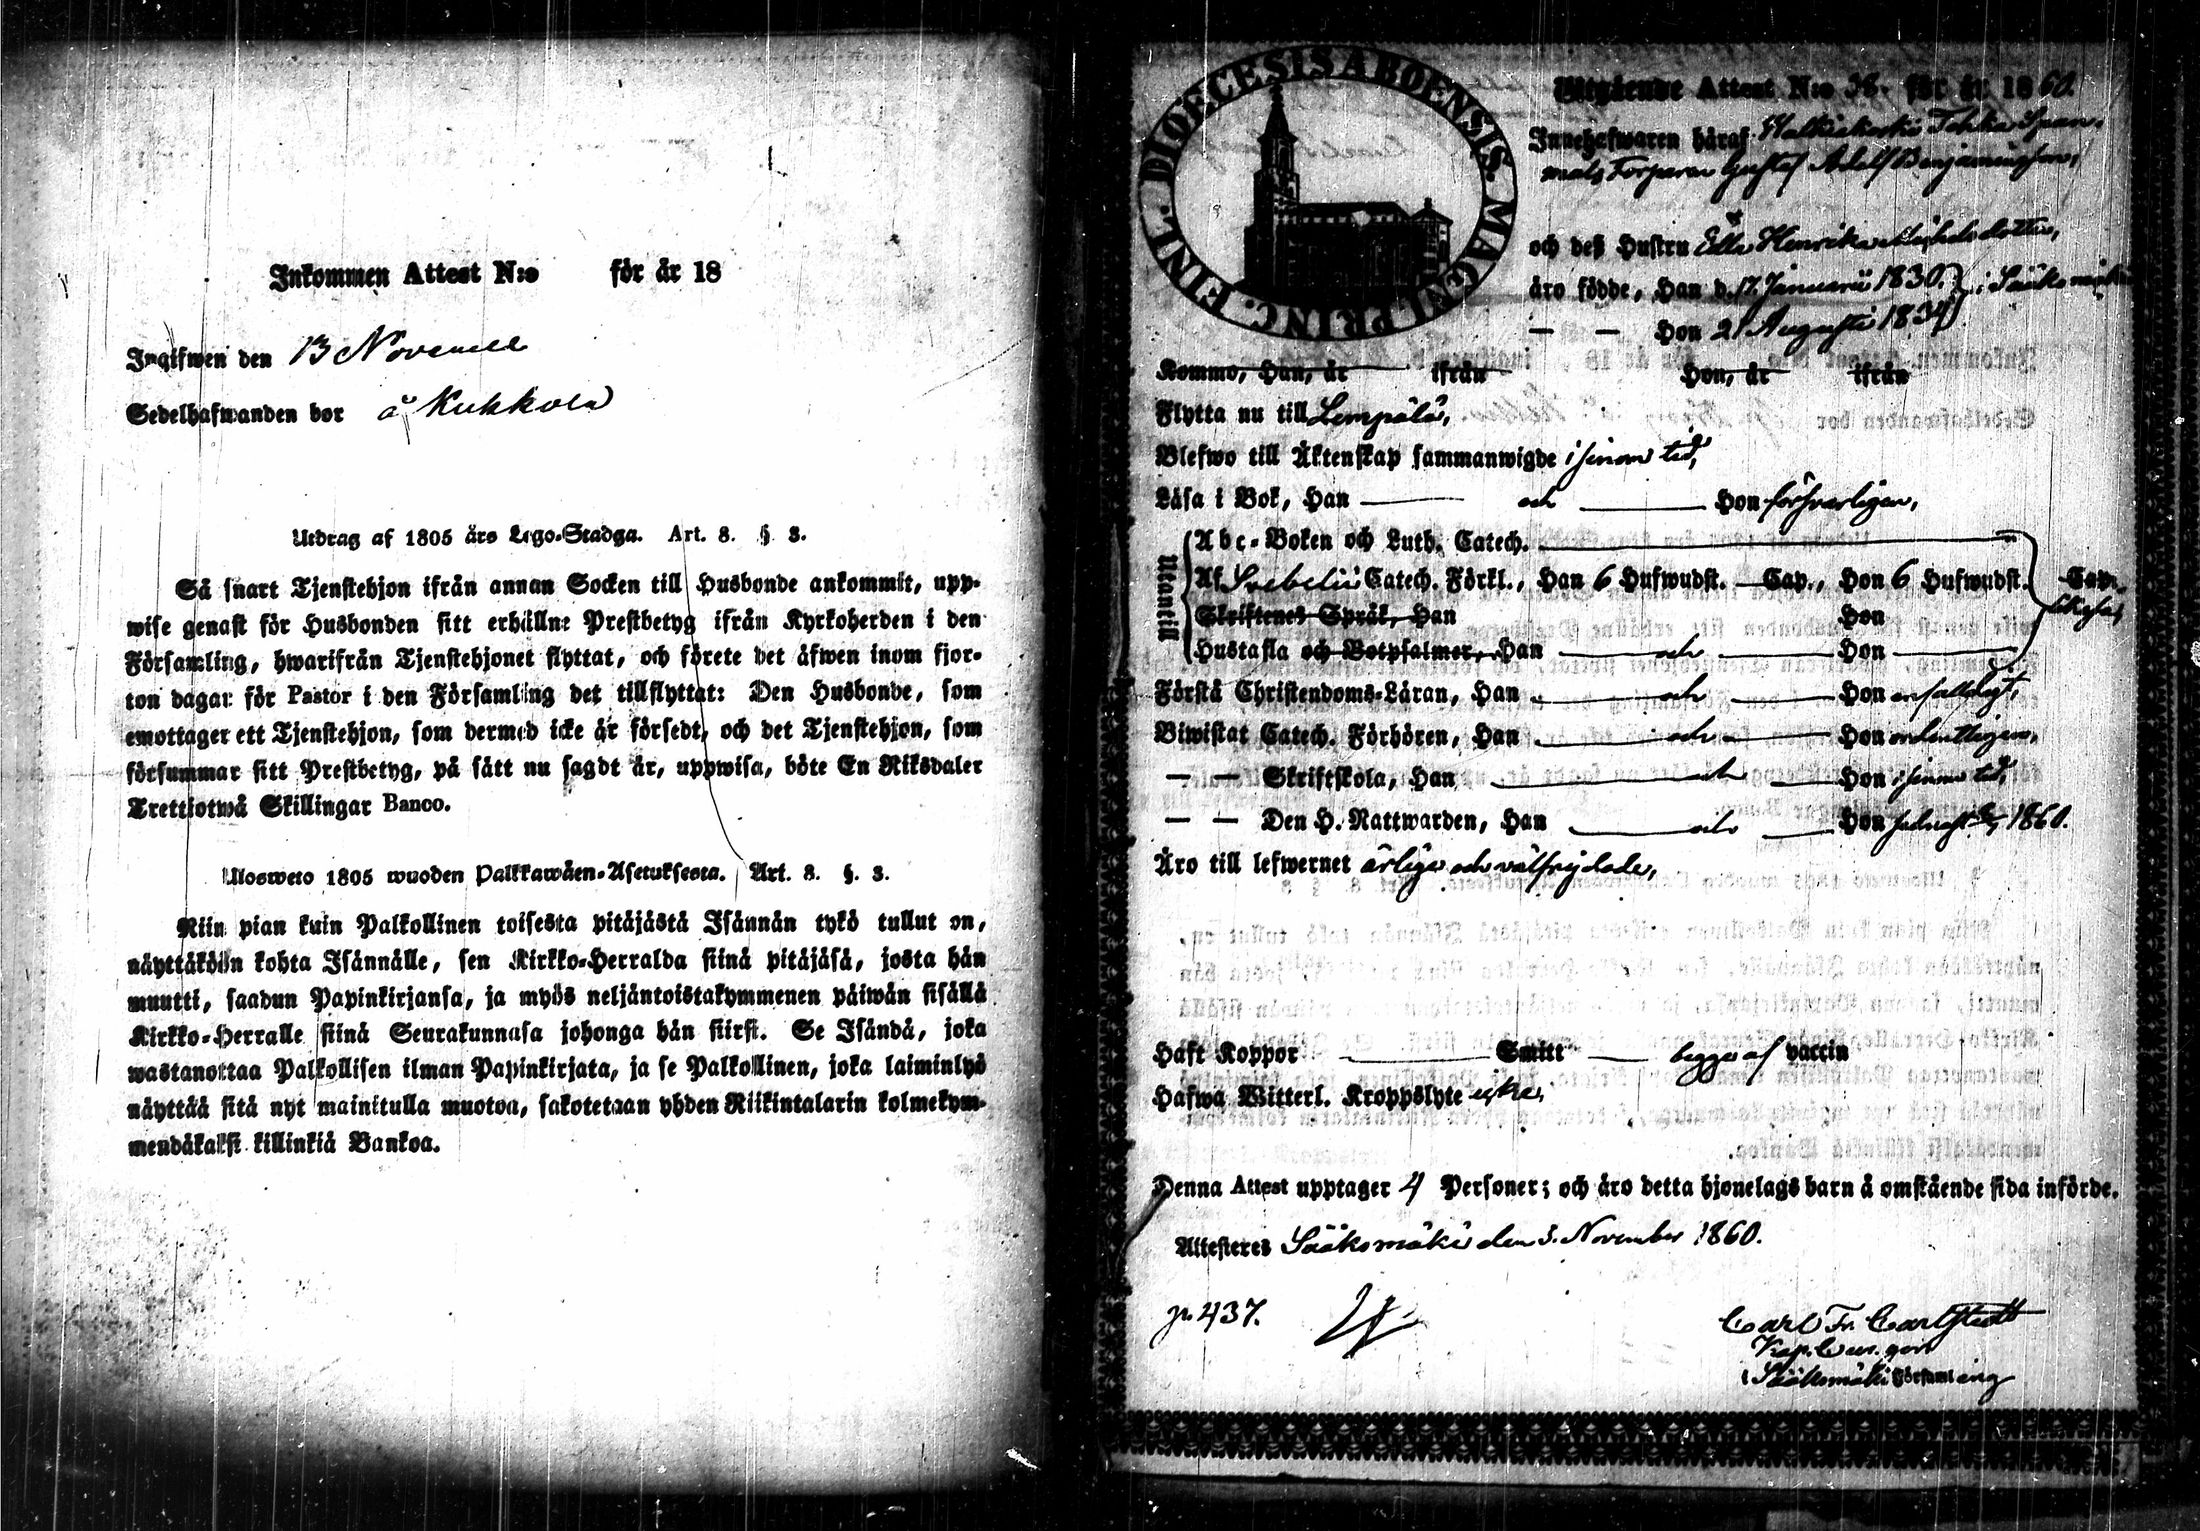 Inkommen Attest N:o för år 18
Ingifwen den 13 November
Sedelhafwanden bor å Kukkola
Utdrag af 1805 års Lego-Stadga. Art. 8. § 3.
Så snart Tjenstehjon ifrån annan Socken till Husbonde ankommit, upp-
wise genast för Husbonden sitt erhållne Prestbetyg ifrån Kyrkoherden i den
Församling, hwarifrån Tjenstehjonet flyttat, och förete det äfwen inom fjor-
ton dagar för Pastor i den Församling det tillflyttat: Den Husbonde, som
emottager ett Tjenstehjon, som dermed icke är försedt, och det Tjenstehjon, som
försummar sitt Prestbetyg, på sätt nu sagdt är, uppwisa, böte En Riksdaler
Trettiotwå Skillingar Banco.
Ulosweto 1805 wuoden Palkkawäen-Asetuksesta. Art. 8. §. 3.
Niin pian kuin Palkollinen toisesta pitäjästä Isännän tykö tullut on,
näyttäköön kohta Isännälle, sen Kirkko-Herralda siinä pitäjäsä, josta hän
muutti, saadun Papinkirjansa, ja myös neljäntoistakymmenen päiwän sisällä
Kirkko-Herralle siinä Seurakunnasa johonga hän siirsi. Se Isändä, joka
wastanottaa Palkollisen ilman Papinkirjata, ja se Palkollinen, joka laiminlyö
näyttää sitä nyt mainitulla muotoa, sakotetaan yhden Riikintalarin kolmekym-
mendäkaksi killinkiä Bankoa.
DIOECESIS ABOENSIS. MAGNI. PRINC. FINL.
Utgående Attest N:o 38. för år 1860.
Innehafwaren häraf
Torparen Gustaf Adolf Benjaminsson,
och deß Hustru Henrika Michelsdotter,
äro födde, Han d. 17. Januarii 1830. } i Sääksmäki
— — Hon 21 Augusti 1834
Kommo, Han, år ifrån Hon, år ifrån
Flytta nu till Lempälä,
Blefwo till Äktenskap sammanwigde i sinom tid,
Läsa i Bok, Han — och — Hon försvarligen,
Utantill
Abc-Boken och Luth. Catech.
Af Svebelii Catech. Förkl., Han 6 Hufwudst. Cap., Hon 6 Hufwudst. Cap.
Skriftenes Språk, Han Hon
Hustafla och Botpsalmer, Han — och — Hon
Förstå Christendoms-Läran, Han — och — Hon enfalldigt,
Biwistat Catech. Förhören, Han — och — Hon ordentligen,
— — Skriftskola, Han — och — Hon i sinom tid,
— — Den H. Nattwarden, Han — och — Hon senast 1860.
Äro till lefwernet ärlige och välfrejdade,
Haft Koppor — Smitt — begge af vaccin
Hafwa Witterl. Kroppslyte icke,
Denna Attest upptager 4 Personer; och äro detta hjonelags barn å omstående sida införde.
Attesteres Sääksmäki den 3. November 1860.
p. 437.
Carl Fr. Carlstedt
Kap.
i Sääksmäki Församling